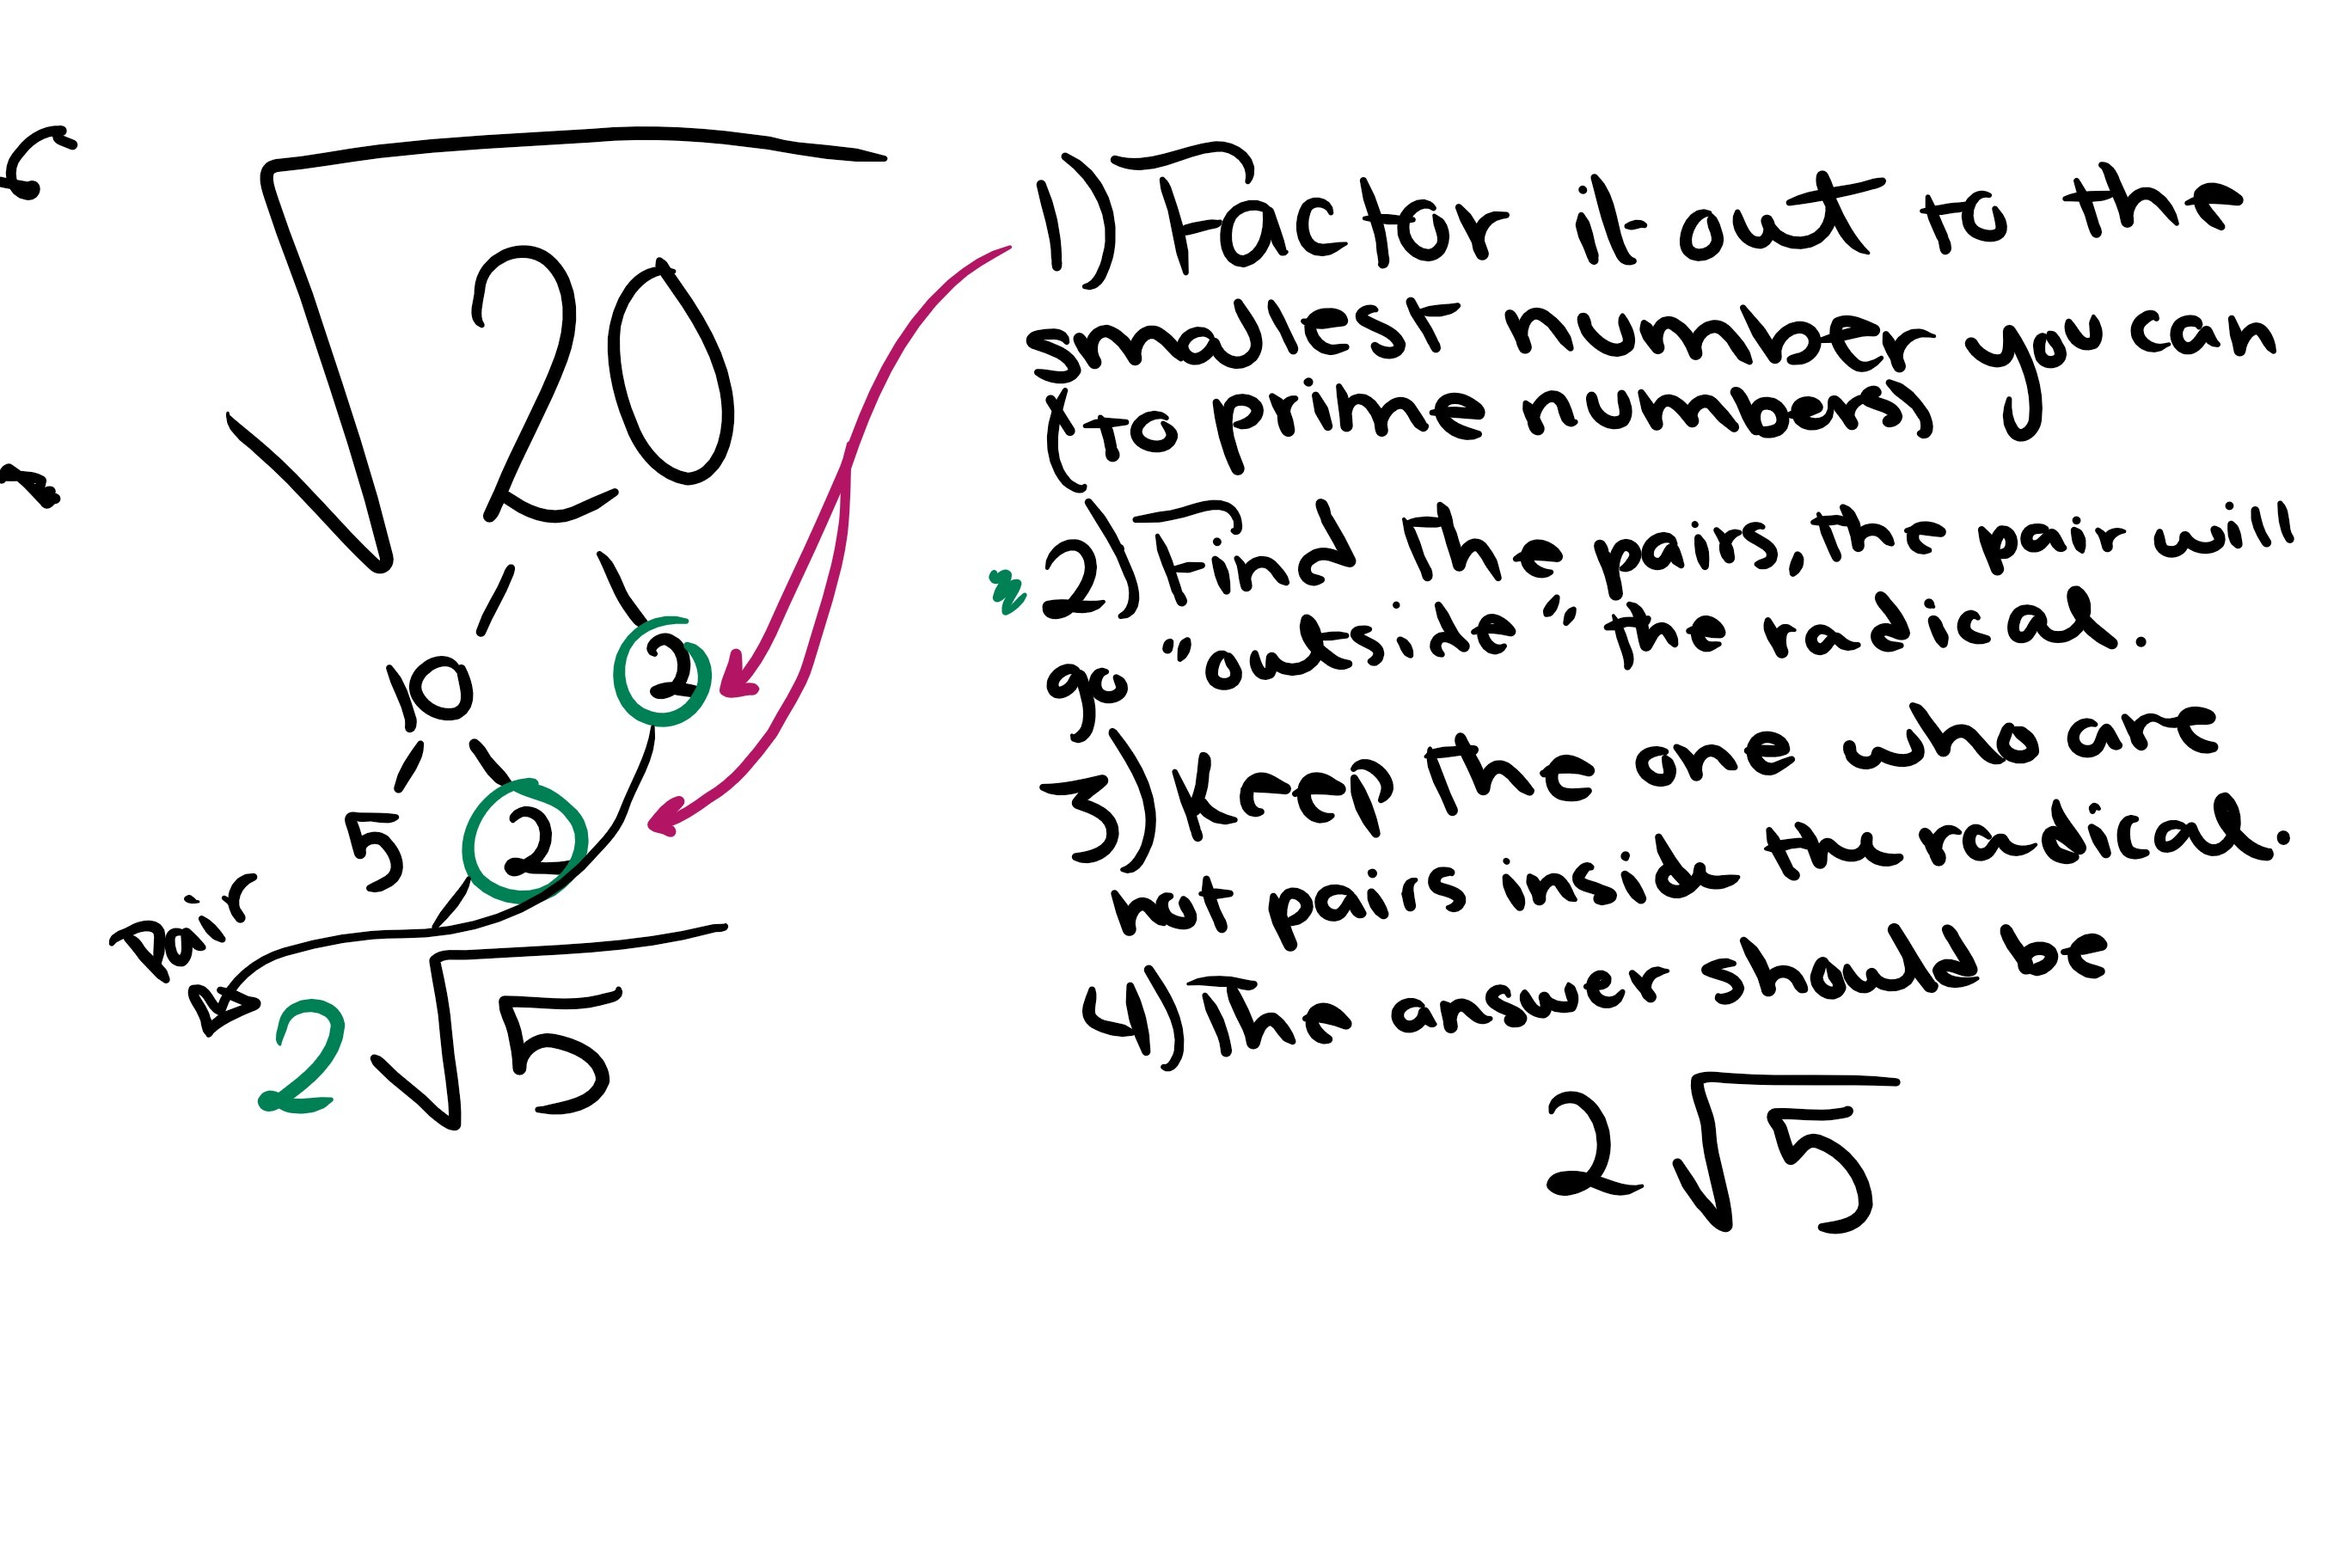 √20
10 2
5 2
Pair
2√5
1) Factor it out to the
smallest number you can
(to prime numbers)
2) Find the pairs, the pair will
go "outside" the radical.
3) keep the one who are
not pairs inside the radical.
4) The answer should be
2√5